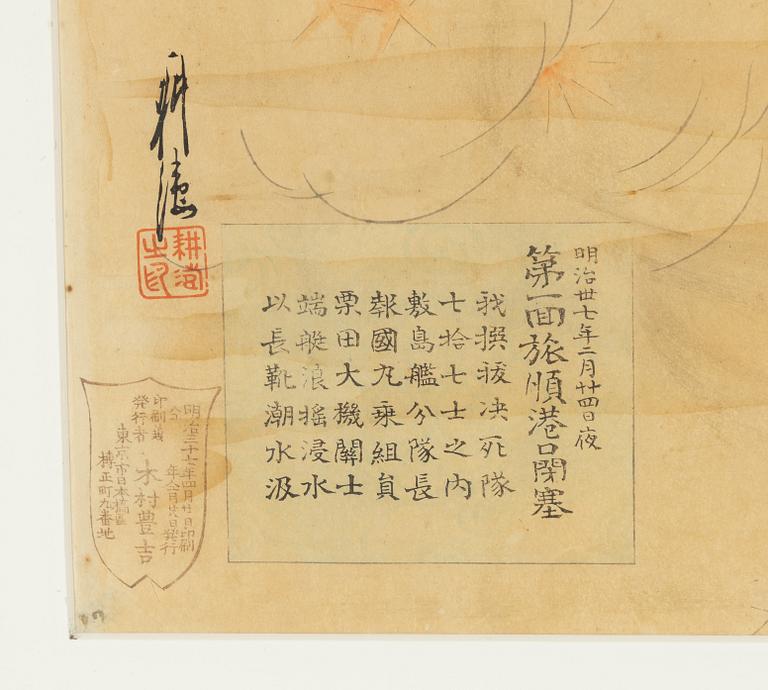 明治丗七年二月廿四日夜
第一回旅順港口閉塞
我撰抜决死隊
七拾七士之内
敷島艦分隊長
報國丸乗組員
栗田大機關士
端艇浪搖浸水
以長靴潮水汲
耕濤
耕濤
之印
明治三十七年四月廿日印刷
年仝月廿日発行
印刷兼
発行者
木村豊吉
東京市日本橋區
町九番地